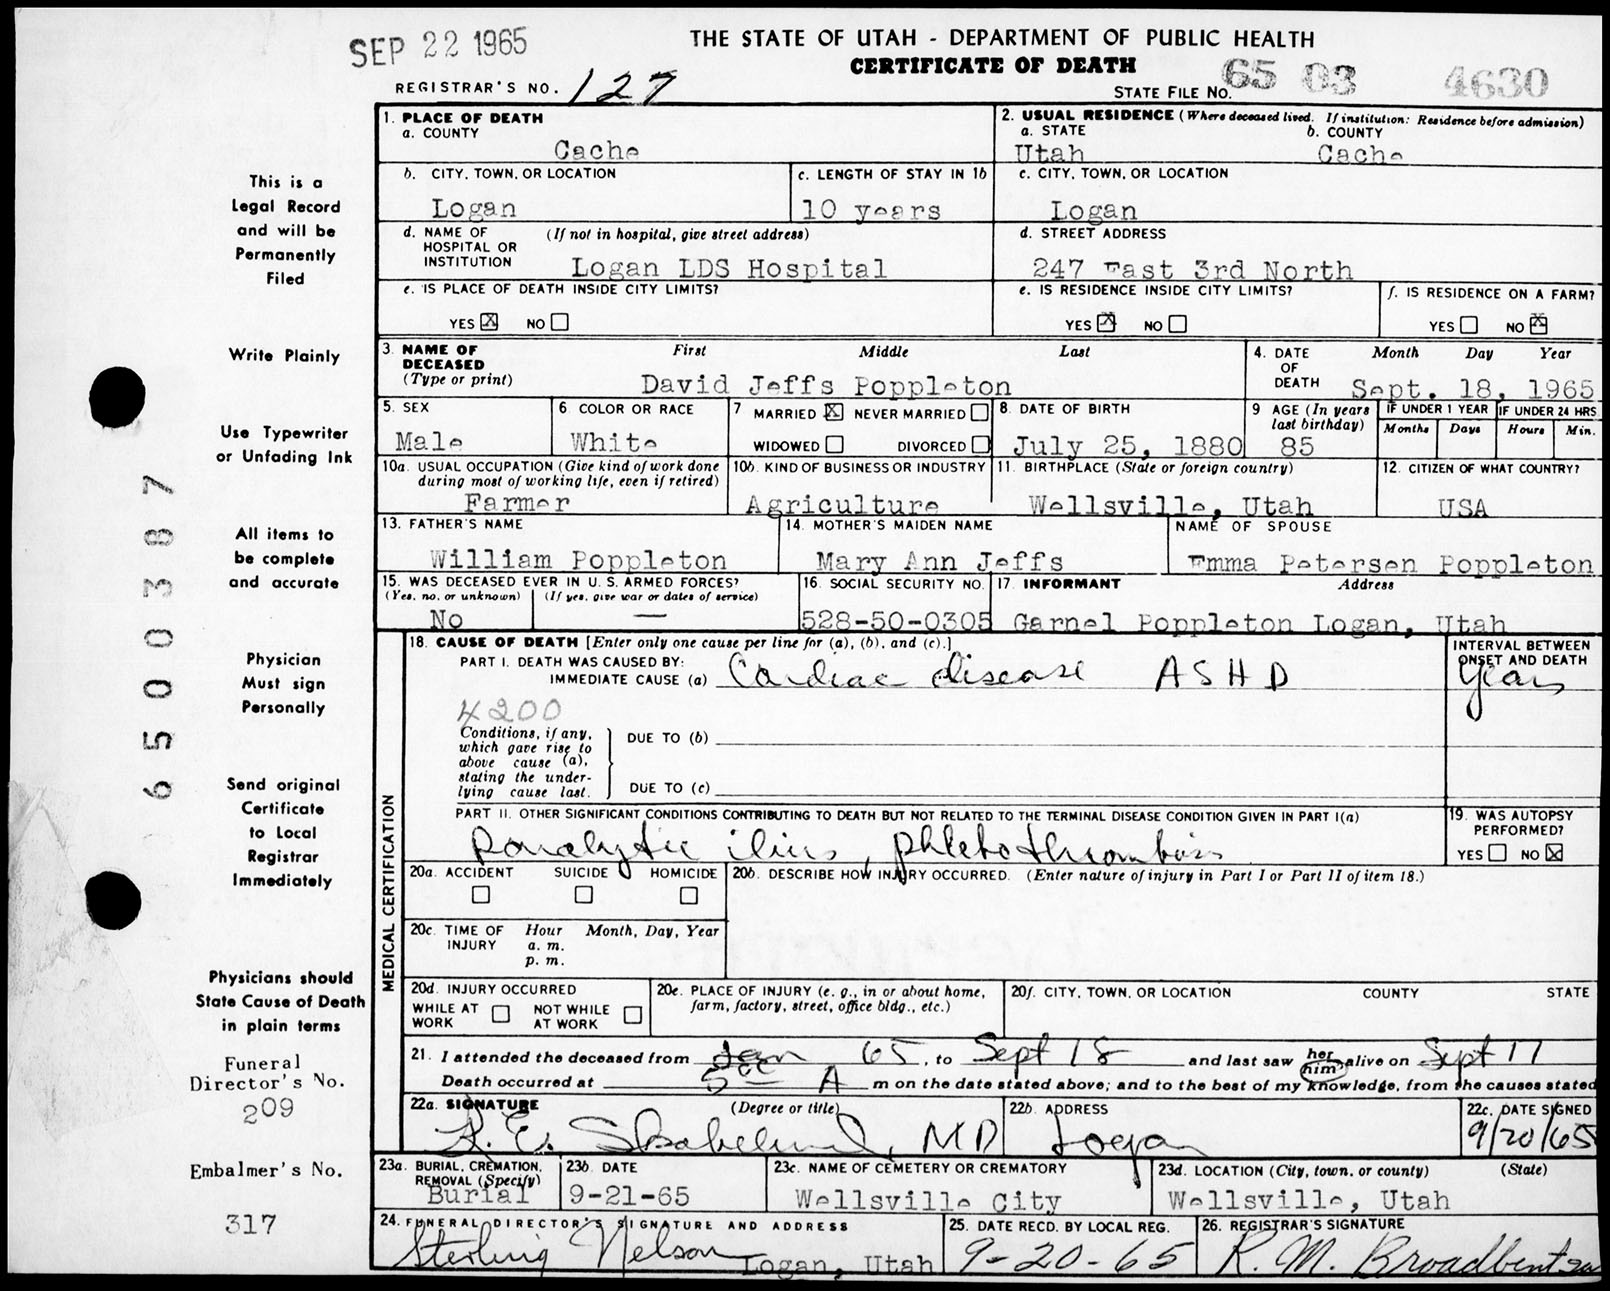 SEP 22 1965
THE STATE OF UTAH - DEPARTMENT OF PUBLIC HEALTH
CERTIFICATE OF DEATH
REGISTRAR'S NO. 127
STATE FILE NO. 65 03 4630
This is a
Legal Record
and will be
Permanently
Filed
Write Plainly
Use Typewriter
or Unfading Ink
All items to
be complete
and accurate
Physician
Must sign
Personally
Send original
Certificate
to Local
Registrar
Immediately
Physicians should
State Cause of Death
in plain terms
Funeral
Director's No.
209
Embalmer's No.
317
6500387
1. PLACE OF DEATH
a. COUNTY
Cache
2. USUAL RESIDENCE (Where deceased lived. If institution: Residence before admission)
a. STATE b. COUNTY
Utah Cache
b. CITY, TOWN, OR LOCATION
Logan
c. LENGTH OF STAY IN 1b
10 years
c. CITY, TOWN, OR LOCATION
Logan
d. NAME OF (If not in hospital, give street address)
HOSPITAL OR
INSTITUTION Logan LDS Hospital
d. STREET ADDRESS
247 East 3rd North
e. IS PLACE OF DEATH INSIDE CITY LIMITS?
YES X NO
e. IS RESIDENCE INSIDE CITY LIMITS?
YES X NO
f. IS RESIDENCE ON A FARM?
YES NO X
3. NAME OF First Middle Last
DECEASED
(Type or print) David Jeffs Poppleton
4. DATE Month Day Year
OF
DEATH Sept. 18, 1965
5. SEX
Male
6. COLOR OR RACE
White
7 MARRIED X NEVER MARRIED
WIDOWED DIVORCED
8. DATE OF BIRTH
July 25, 1880
9 AGE (In years
last birthday)
85
IF UNDER 1 YEAR
Months Days
IF UNDER 24 HRS.
Hours Min.
10a. USUAL OCCUPATION (Give kind of work done
during most of working life, even if retired)
Farmer
10b. KIND OF BUSINESS OR INDUSTRY
Agriculture
11. BIRTHPLACE (State or foreign country)
Wellsville, Utah
12. CITIZEN OF WHAT COUNTRY?
USA
13. FATHER'S NAME
William Poppleton
14. MOTHER'S MAIDEN NAME
Mary Ann Jeffs
NAME OF SPOUSE
Emma Petersen Poppleton
15. WAS DECEASED EVER IN U. S. ARMED FORCES?
(Yes, no, or unknown) (If yes, give war or dates of service)
No —
16. SOCIAL SECURITY NO.
528-50-0305
17. INFORMANT Address
Garnel Poppleton Logan, Utah
MEDICAL CERTIFICATION
18. CAUSE OF DEATH [Enter only one cause per line for (a), (b), and (c).]
PART I. DEATH WAS CAUSED BY:
IMMEDIATE CAUSE (a) Cardiac disease ASHD
INTERVAL BETWEEN
ONSET AND DEATH
years
4200
Conditions, if any,
which gave rise to
above cause (a),
stating the under-
lying cause last.
DUE TO (b)
DUE TO (c)
PART II. OTHER SIGNIFICANT CONDITIONS CONTRIBUTING TO DEATH BUT NOT RELATED TO THE TERMINAL DISEASE CONDITION GIVEN IN PART I(a)
Paralytic ilius, phlebothrombosis
19. WAS AUTOPSY
PERFORMED?
YES NO X
20a. ACCIDENT SUICIDE HOMICIDE
20b. DESCRIBE HOW INJURY OCCURRED. (Enter nature of injury in Part I or Part II of item 18.)
20c. TIME OF Hour Month, Day, Year
INJURY a. m.
p. m.
20d. INJURY OCCURRED
WHILE AT WORK NOT WHILE AT WORK
20e. PLACE OF INJURY (e. g., in or about home,
farm, factory, street, office bldg., etc.)
20f. CITY, TOWN, OR LOCATION COUNTY STATE
21. I attended the deceased from Jan 65, to Sept 18 and last saw her him alive on Sept 17
Death occurred at 5 00 A m on the date stated above; and to the best of my knowledge, from the causes stated
22a. SIGNATURE (Degree or title)
R. E. Skabelund, MD
22b. ADDRESS
Logan
22c. DATE SIGNED
9/20/65
23a. BURIAL, CREMATION,
REMOVAL (Specify)
Burial
23b. DATE
9-21-65
23c. NAME OF CEMETERY OR CREMATORY
Wellsville City
23d. LOCATION (City, town, or county) (State)
Wellsville, Utah
24. FUNERAL DIRECTOR'S SIGNATURE AND ADDRESS
Sterling Nelson Logan, Utah
25. DATE RECD. BY LOCAL REG.
9-20-65
26. REGISTRAR'S SIGNATURE
R. M. Broadbent